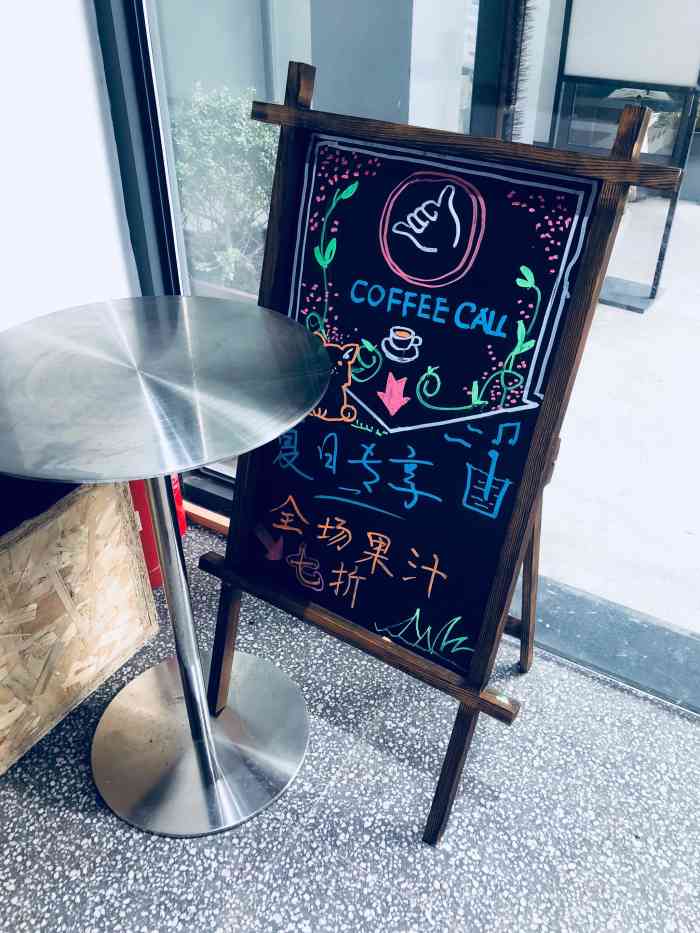 COFFEE CALL
夏日专享
全场果汁
七折